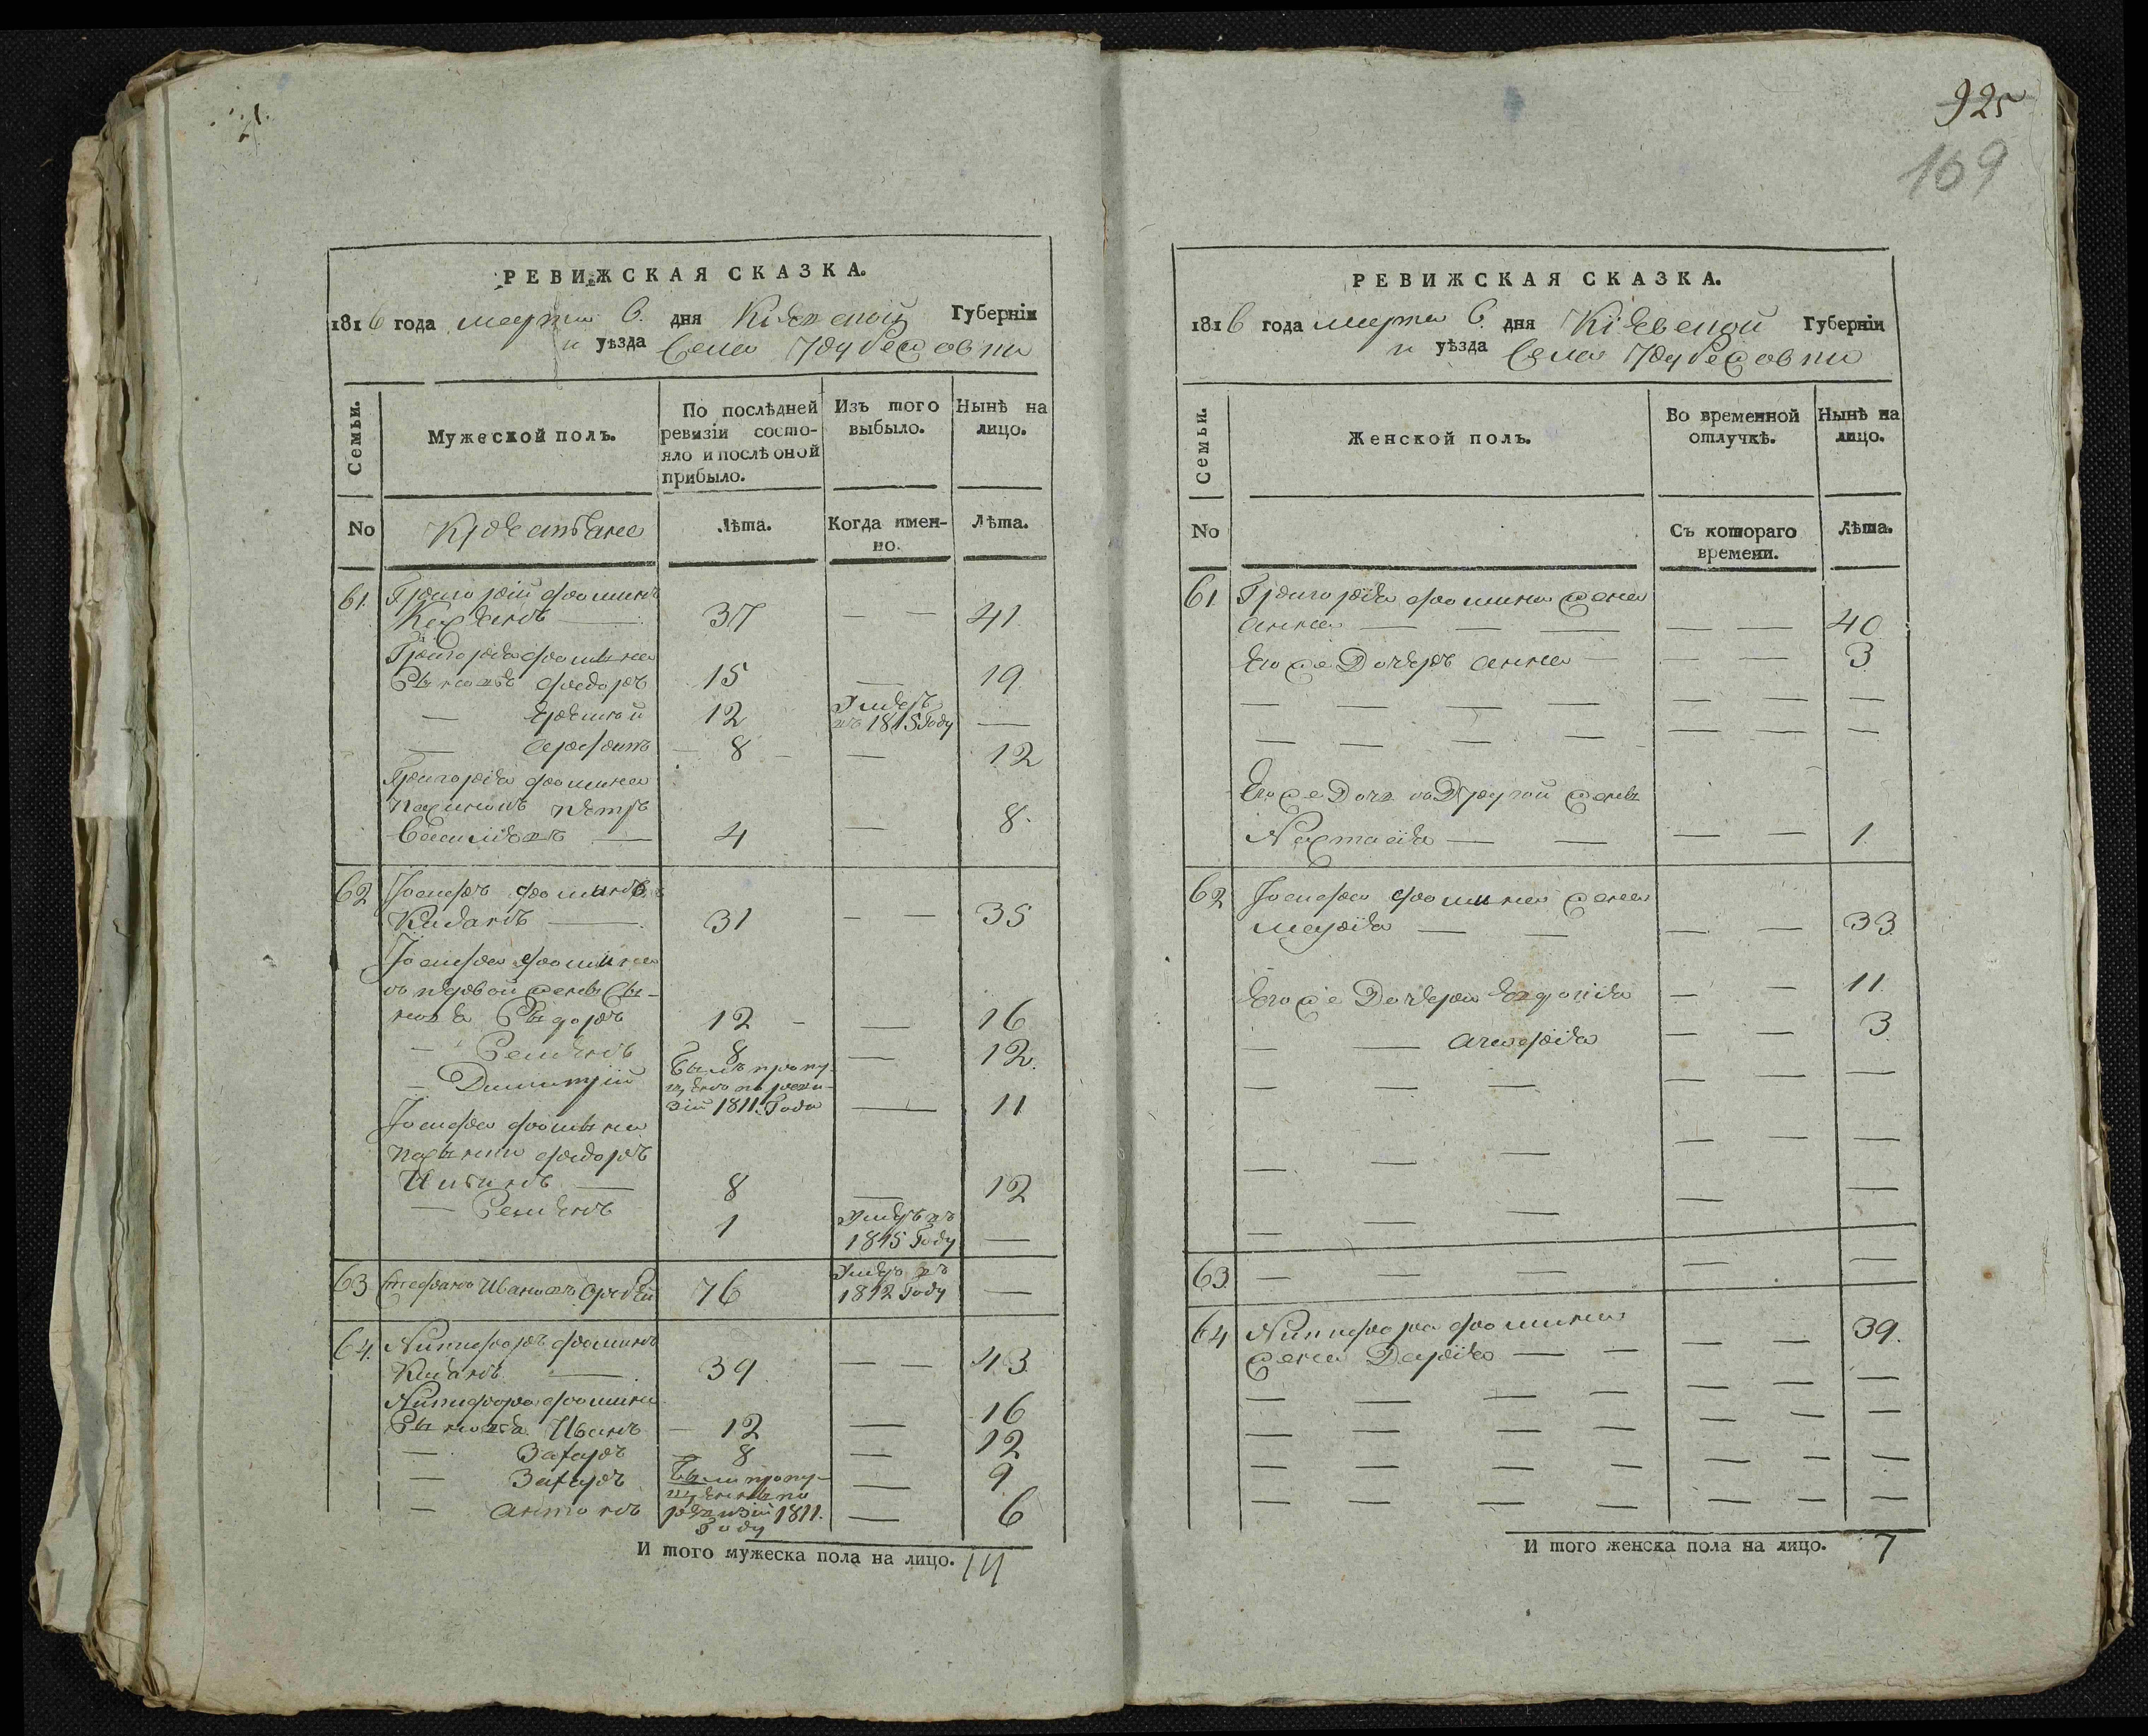 925
169
РЕВИЖСКАЯ СКАЗКА.
1816 года марта 6. дня Кіевской Губерніи
и уѣзда Села
Семьи.
Мужеской полъ.
По послѣдней ревизіи состояло и послѣ оной прибыло.
Изъ того выбыло.
Нынѣ на лицо.
No
Крестьяне
Лѣта.
Когда имен-
но.
Лѣта.
61. Григорій Фоминъ
37 — — 41.
Григорія Фомина
Сыновья Федоръ 15 — 19.
— Еремѣй 12 Умеръ
въ 1815 Году —
— 8 — — 12
Григорія Фомина
Пасынокъ Петръ
Василіевъ — 4 — 8.
62 Іосифъ Фоминъ
— 31 — — 35
Іосифа Фомина
съ первой жены Сы-
новья Сыдоръ 12 — — 16
— Семенъ 8 — 12.
— Димитрій Былъ пропу-
щенъ по реви-
зіи 1811. Года — 11
Іосифа Фомина
Пасынки Федоръ
— 8 — 12
— Семенъ 1 Умеръ въ
1815 Году —
63 Стефанъ Ивановъ 76 Умеръ въ
1812 Году —
64. Никифоръ Фоминъ
— 39 — — 43
Никифора Фомина
Сыновья Иванъ — 12 — 16
— Захаръ — 8 — 12
— Захаръ Были пропу- — 9
щенны по
— Антонъ ревизіи 1811. — 6
Году
И того мужеска пола на лицо. 14
РЕВИЖСКАЯ СКАЗКА.
1816 года марта 6. дня Кіевской Губерніи
и уѣзда Села
Семьи.
Женской полъ.
Во временной отлучкѣ.
Нынѣ на лицо.
No
Съ котораго времени.
Лѣта.
61 Григорія Фомина жена
Анна — — — — — 40
Его же Дочерь Анна — — — 3.
— — — — — — —
— — — — — — —
Его же Дочь съ Другой жены
Настасія — — — — 1.
62 Іосифа Фомина жена
Марія — — — — 33
Его же Дочери Евдокія — — 11.
— — — — 3.
— — — — — —
— — — — — —
— — — — —
63 — — — — —
64 Никифора Фомина
жена Дарія — — — — 39.
— — — — — —
— — — — — —
— — — — — —
— — — — — —
И того женска пола на лицо. 7